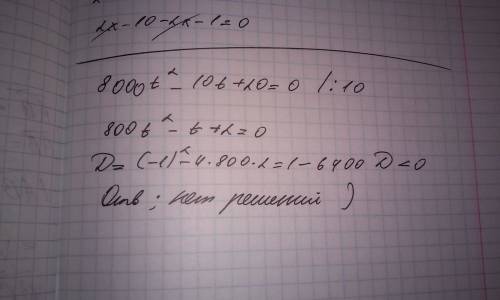 2x - 10 - 2x - 1 = 0
8000t² - 10t + 20 = 0 /:10
800t² - t + 2 = 0
D = (-1)² - 4·800·2 = 1 - 6400 D < 0
Отв; нет решений )